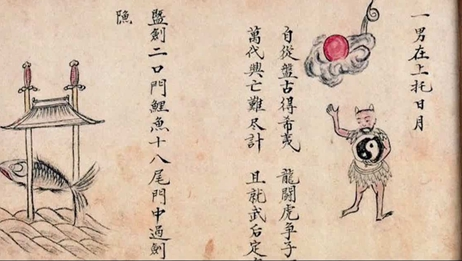 一男在上托日月
自從盤古得希夷 龍鬪虎爭子
萬代興亡難尽計 且就武后定
暨劍二口門鯉魚十八尾門中過劍